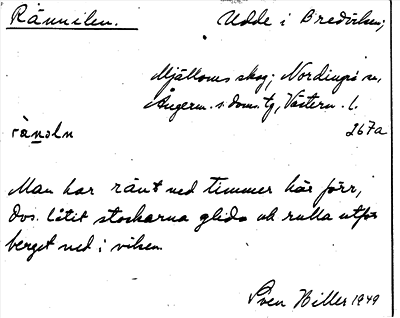 Rännilen. Udde i Bredviken;
Mjälloms skog; Nordingrå sn,
Ångerm. s. doms. tg, Västern. l.
rànəln 267a
Man har ränt ned timmer här förr,
dvs. låtit stockarna glida och rulla utför
berget ned i viken.
Sven Hiller 1949